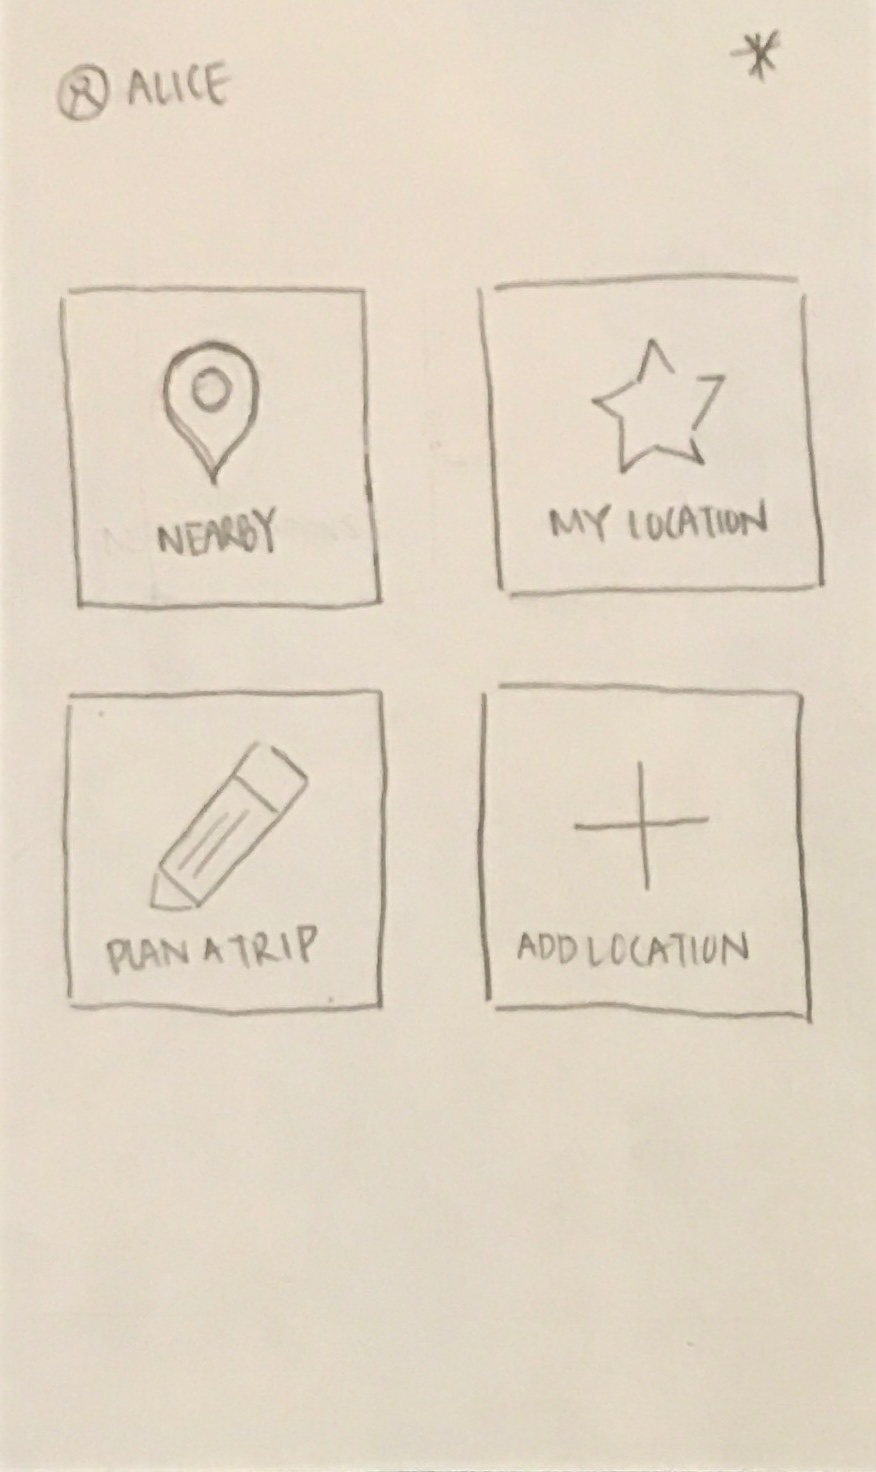 ALICE
NEARBY
MY LOCATION
PLAN A TRIP
ADD LOCATION